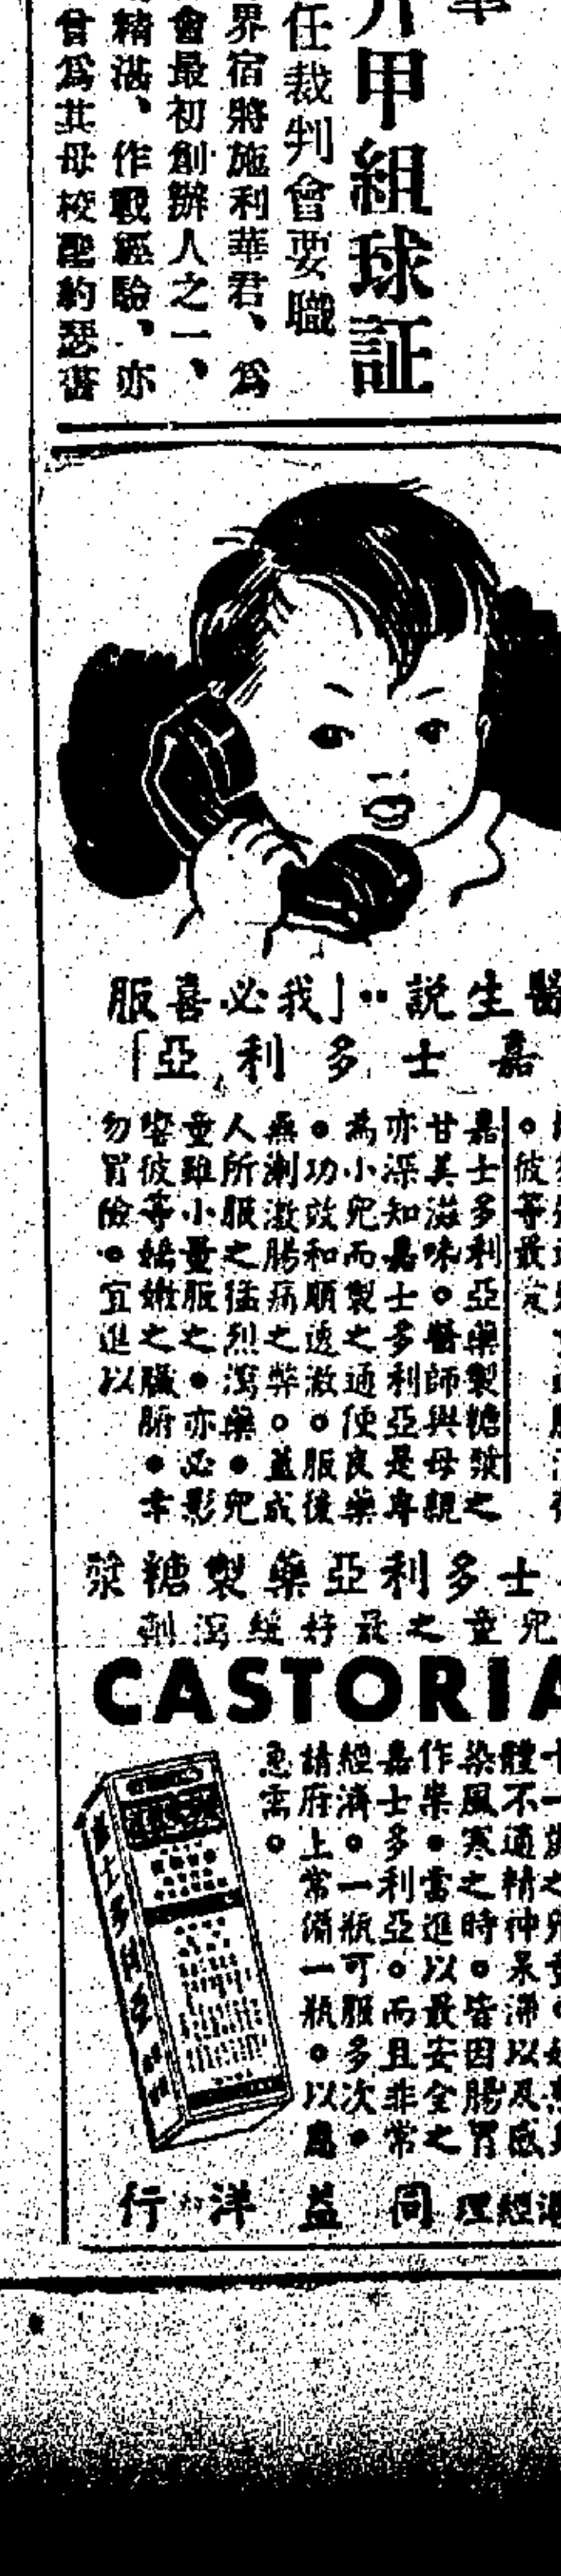 升甲組球証
任裁判會要職
界宿將施利華君、爲
會最初創辦人之一、
精湛、作戰經驗、亦
曾爲其母校聖約瑟書
醫生說：「我必喜服
嘉士多利亞」
。彼等最
嘉士多利亞藥製糖漿之
甘美滋味。醫師與母親
亦深知嘉士多利亞是專
為小兒而製之通便良藥
。功效和順透澈。服後
無刺激腸病之弊。蓋成
人所服之猛烈瀉藥。兒
童雖小量服之。亦必影
響彼等嬌嫩之臟腑。幸
勿冒險。宜進以
士多利亞藥製糖漿
兒童之最好緩瀉劑
CASTORIA
體不適精神呆滯以及感
染風寒之時。皆因腸胃
作祟。當進以最安全之
嘉士多利亞。而且非常
經濟。一瓶可服多次。
請府上常備一瓶。以應
急需。
經理
同益洋行